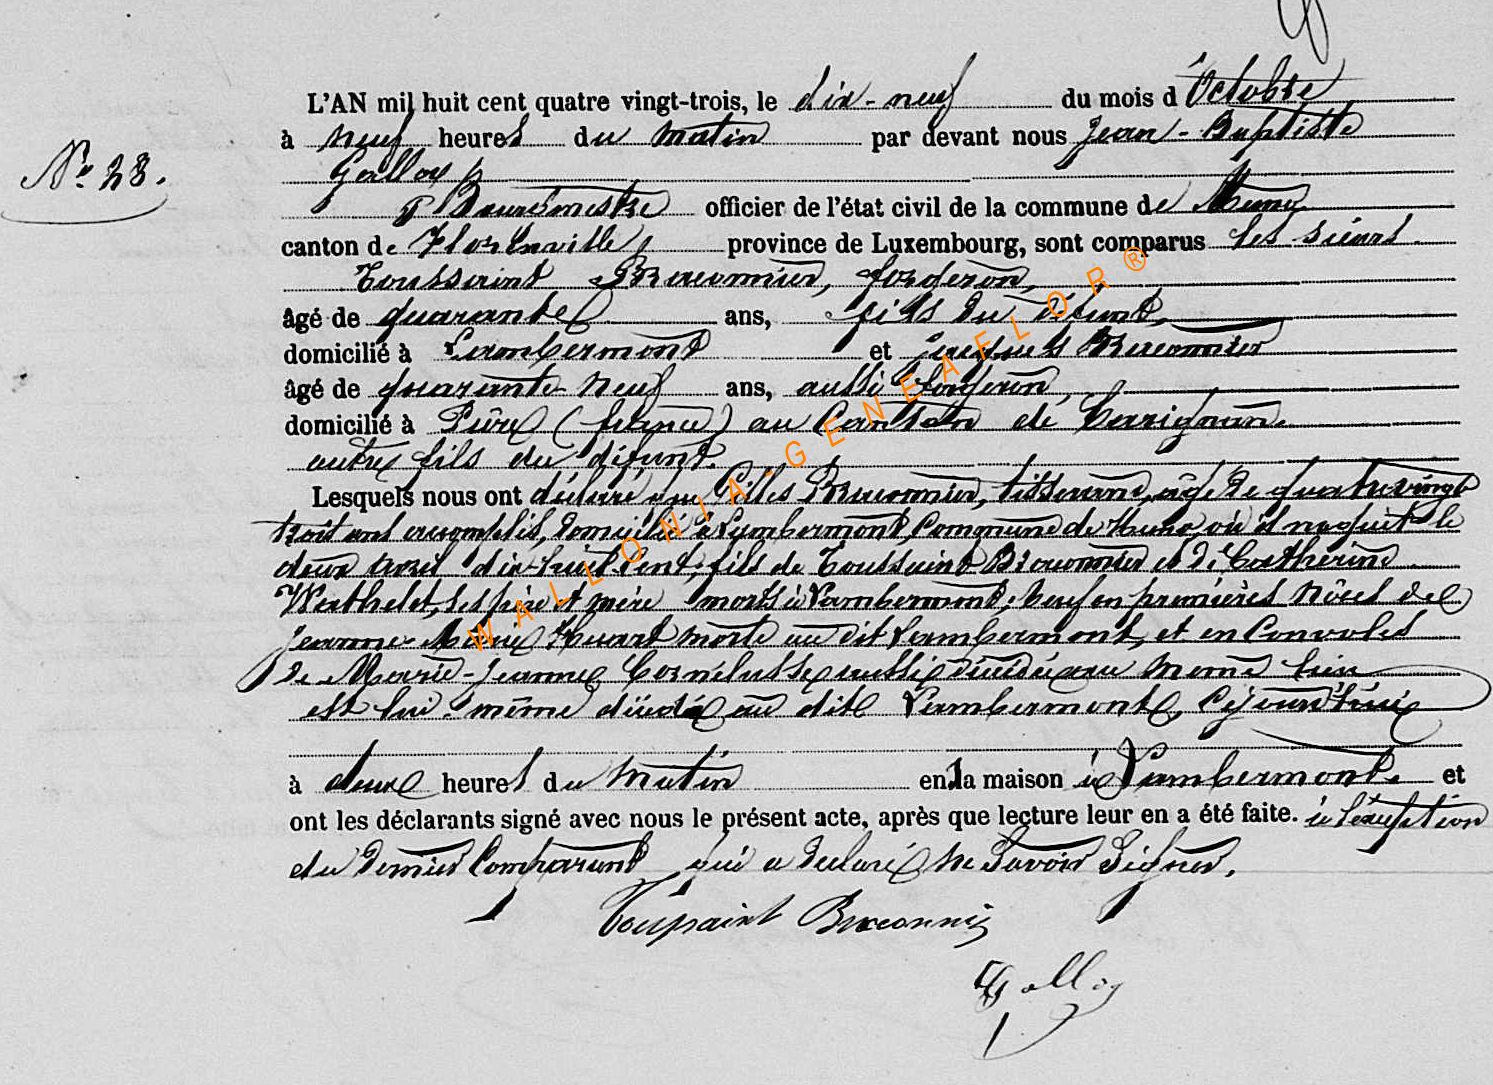 L'AN mil huit cent quatre vingt-trois, le dix-neuf du mois d'Octobre
N° 28.
à neuf heures du matin par devant nous Jean-Baptiste
Galloy
Bourgmestre officier de l'état civil de la commune de Muno
canton de Florenville province de Luxembourg, sont comparus les sieurs
Toussaint Braconnier, forgeron,
âgé de quarante ans, fils du défunt,
domicilié à Lambermont et Jacques Braconnier
âgé de quarante-neuf ans, aussi forgeron,
domicilié à Pure (france) au Canton de Carignan.
autre fils du défunt.
Lesquels nous ont déclaré que Gilles Braconnier, tisserand, âgé de quatre vingt
trois ans accomplis, domicilié à Lambermont, Commune de Muno, où il naquit le
deux avril dix-huit cent, fils de Toussaint Braconnier et de Catherine
Wathelet, ses père et mère morts à Lambermont; Veuf en premières Nôces de
Jeanne-Marie Huart morte au dit Lambermont, et en Convoles
de Marie-Jeanne Cornelusse aussi décédée au même lieu
est lui-même décédé au dit Lambermont, Cejourd'hui
à deux heures du matin en la maison à Lambermont. et
ont les déclarants signé avec nous le présent acte, après que lecture leur en a été faite. à l'exception
du dernier Comparant qui a déclaré ne Savoir Signer.
Toussaint Braconnier
Galloy
WALLONIA-GENEAFLOR®